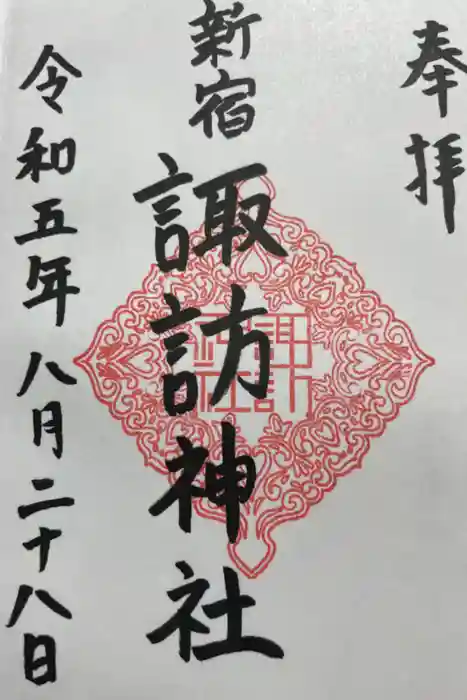 奉拝
新宿
諏訪神社
令和五年八月二十八日